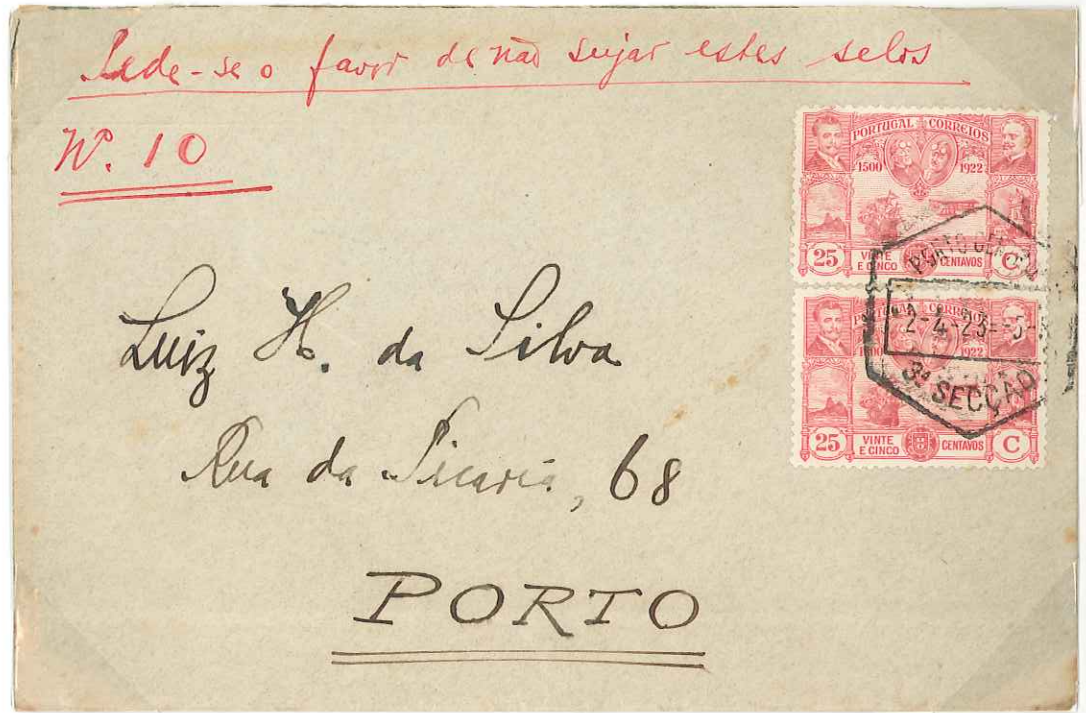 Pede-se o favor de não sujar estes selos
Nº. 10
PORTUGAL CORREIOS
1500 1922
25 VINTE E CINCO CENTAVOS C
PORTO CENTRAL
2-4-23
3ª SECÇÃO
PORTUGAL CORREIOS
1500 1922
25 VINTE E CINCO CENTAVOS C
Luiz H. da Silva
Rua da Picaria, 68
PORTO